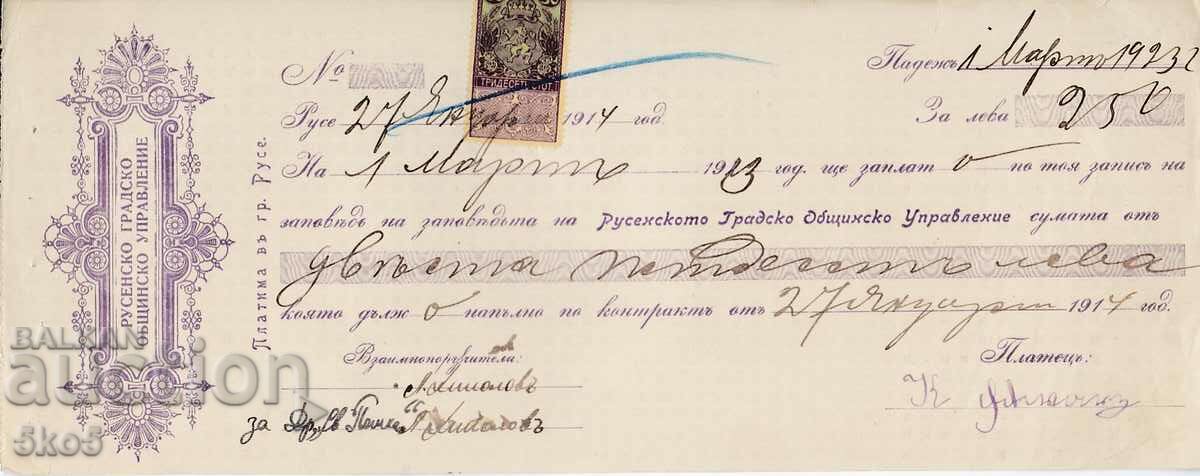 РУСЕНСКО ГРАДСКО
ОБЩИНСКО УПРАВЛЕНИЕ
Платима въ гр. Русе.
№
ТРИДЕСЕТ СТОТ.
Падежъ 1 Мартъ 1923 г
Русе 27 Януарий 1914 год.
За лева 250
На 1 Мартъ 1923 год. ще заплат о по тоя запись на
заповѣдь на заповѣдьта на Русенското Градско Общинско Управление сумата отъ
двѣста петдесетъ лева
която дълж о напълно по контрактъ отъ 27 Януарий 1914 год.
Взаимнопоръчители:
Платецъ:
за
BALKAN
auction
5ko5